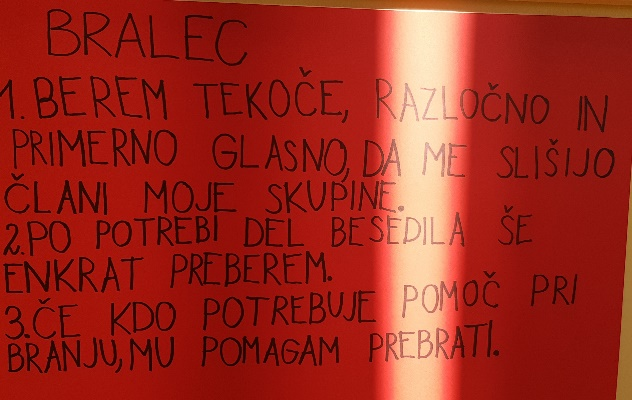 BRALEC
1. BEREM TEKOČE, RAZLOČNO IN
PRIMERNO GLASNO, DA ME SLIŠIJO
ČLANI MOJE SKUPINE.
2. PO POTREBI DEL BESEDILA ŠE
ENKRAT PREBEREM.
3. ČE KDO POTREBUJE POMOČ PRI
BRANJU, MU POMAGAM PREBRATI.